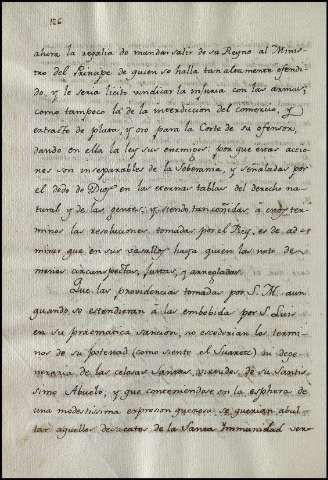 126
ahora la regalia de mandar salir de su Reyno al Minis-
tro del Principe de quien se halla tan altamente ofendi-
do, y le seria licito vindicar la injuria con las armas,
como tampoco la de la interdiccion del comercio, y
extracto de plata, y oro para la Corte de su ofensor,
dando en ella la ley sus enemigos: por que estas accio-
nes son inseparables de la Soberania, y señaladas por
el dedo de Dios en las eternas tablas del derecho na-
tural, y de las gentes; y siendo tan ceñidas à estos ter-
minos las resoluciones tomadas por el Rey, es de ad-
mirar que en sus vasallos haya quien las note de
menos circunspectas, justas, y arregladas.
Que las providencias tomadas por S. M. aun
quando se estendieran à las embebida por S. Luis
en su pracmatica sancion, no excederian los termi-
nos de su potestad (como siente el Suarez) ni dege-
neraria de las celosas santas virtudes de su Santis-
simo Abuelo, y que conteniendose en la esphera de
una modestissima expresion quexosa se querian abul-
tar aquellos desacatos de la Santa Immunidad ver-